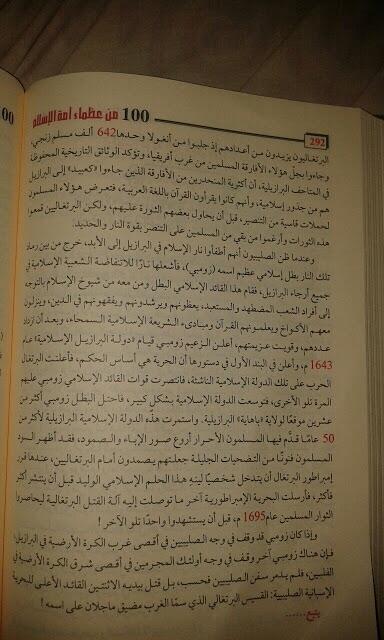 100 من عظماء أمة الإسلام
292
البرتغاليون يزيدون من أعدادهم إذ جلبوا من أنغولا وحدها 642 ألف مسلم زنجي،
وجاءوا بجل هؤلاء الأفارقة المسلمين من غرب أفريقيا، وتؤكد الوثائق التاريخية المحفوظة
في المتاحف البرازيلية، أن أكثرية المنحدرين من الأفارقة الذين جاءوا «كعبيد» إلى البرازيل
هم من جذور إسلامية، وأنهم كانوا يقرأون القرآن باللغة العربية، فتعرض هؤلاء المسلمون
لحملات قاسية من التنصير، قبل أن يحاول بعضهم الثورة عليهم، ولكن البرتغاليين قمعوا
هذه الثورات وأرغموا من بقي من المسلمين على التنصر بقوة النار والحديد.
وعندما ظن الصليبيون أنهم أطفأوا نار الإسلام في البرازيل إلى الأبد، خرج من بين رماد
تلك النار بطل إسلامي عظيم اسمه (زومبي)، فأشعلها نارًا للانتفاضة الشعبية الإسلامية في
جميع أرجاء البرازيل، فقام هذا القائد الإسلامي البطل ومن معه من شيوخ الإسلام بالتوجه
إلى أفراد الشعب المضطهد والمستعبد، يعظونهم ويرشدونهم ويفقهونهم في الدين، وينزلون
معهم الأكواخ ويعلمونهم القرآن ومبادىء الشريعة الإسلامية السمحاء، وبعد أن تزداد
عددهم، وقويت عزيمتهم، أعلن الزعيم زومبي قيام «دولة البرازيل الإسلامية» عام
1643 م، وأعلن في البند الأول في دستورها أن الحرية هي أساس الحكم، فأعلنت البرتغال
الحرب على تلك الدولة الإسلامية الناشئة، فانتصرت قوات القائد الإسلامي زومبي عليهم
المرة تلو الأخرى، فتوسعت الدولة الإسلامية بشكل كبير، فاحتل البطل زومبي أكثر من
عشرين موقعًا لولاية «باهاية» البرازيلية. واستمرت هذه الدولة الإسلامية البرازيلية لأكثر من
50 عامًا قدَّم فيها المسلمون الأحرار أروع صور الإباء والصمود، فقد أظهر السود
المسلمون فنونًا من التضحيات الجليلة جعلتهم يصمدون أمام البرتغاليين، عندها قرر
إمبراطور البرتغال أن يتدخل شخصيًا لينهِ هذا الحلم الإسلامي الوليد قبل أن ينتشر أكثر
فأكثر، فأرسلت البحرية الإمبراطورية آخر ما توصلت إليه آلة القتل البرتغالية ليحاصروا
الثوار المسلمين عام 1695 م، قبل أن يستشهدوا واحدًا تلو الآخر !
وإذا كان زومبي قد وقف في وجه الصليبيين في أقصى غرب الكرة الأرضية في البرازيل،
فإن هناك زومبي آخر وقف في وجه أولئك المجرمين في أقصى شرق الكرة الأرضية في
الفلبين، فلم يدمر سفن الصليبيين فحسب، بل قتل بيديه الاثنتين القائد الأعلى للبحرية
الإسبانية الصليبية: القسيس البرتغالي الذي سمَّا الغرب مضيق ماجلان على اسمه !
يتبع......